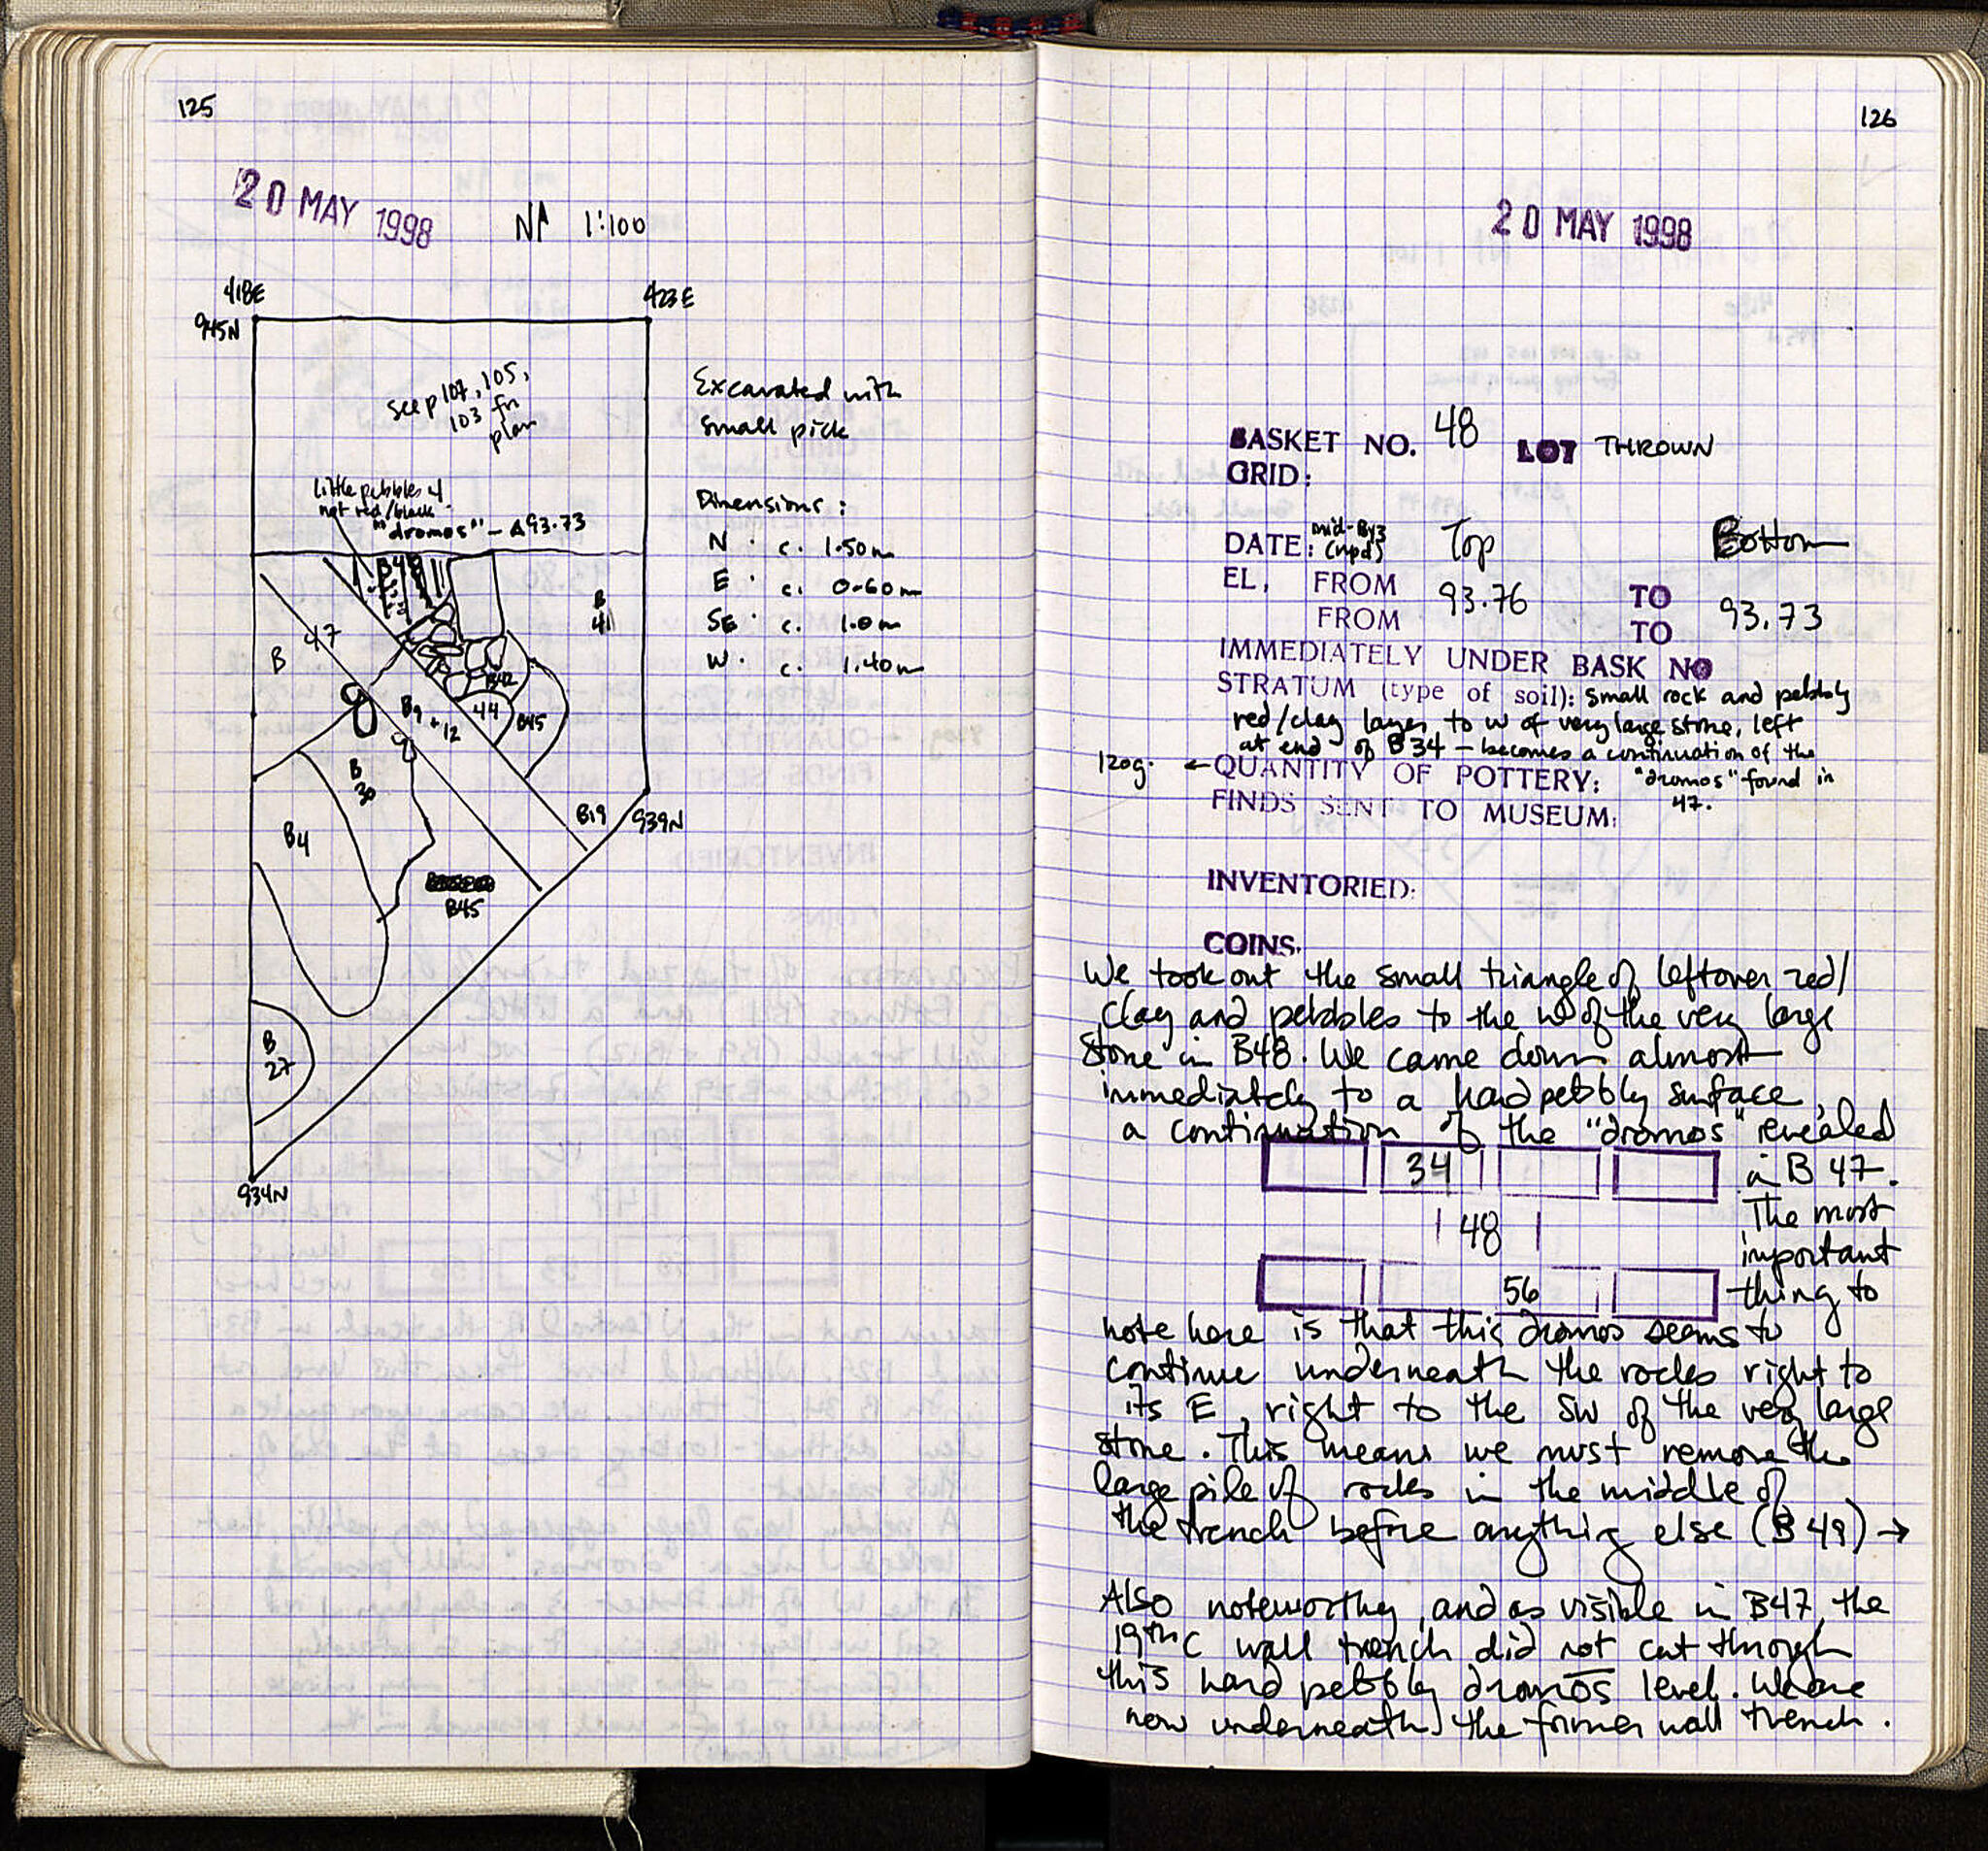 125
20 MAY 1998
N 1:100
418E
423E
945N
see p 107, 105,
103 for
plan
Excavated with
small pick
little pebbles &
not red/black
"dromos" – Δ93.73
Dimensions:
N: c. 1.50m
E: c. 0.60m
SE: c. 1.0m
W: c. 1.40m
B48
B
41
B 47
B42
44
B45
B9 + 12
B
30
B4
B19
939N
B45
B
27
934N
126
20 MAY 1998
BASKET NO. 48 LOT THROWN
GRID:
DATE: mid-By3 Top Bottom
EL, FROM 93.76 TO 93.73
FROM TO
IMMEDIATELY UNDER BASK NO
STRATUM (type of soil): small rock and pebbly
red/clay layer to W of very large stone, left
at end of B34 – becomes a continuation of the
"dromos" found in
47.
120g. ← QUANTITY OF POTTERY:
FINDS SENT TO MUSEUM:
INVENTORIED:
COINS.
We took out the small triangle of leftover red/
clay and pebbles to the W of the very large
stone in B48. We came down almost
immediately to a hard pebbly surface,
a continuation of the "dromos" revealed
34 in B 47.
48 The most
important
56 thing to
note here is that this dromos seems to
continue underneath the rocks right to
its E, right to the SW of the very large
stone. This means we must remove the
large pile of rocks in the middle of
the trench before anything else (B 49) →
Also noteworthy, and as visible in B47, the
19th C wall trench did not cut through
this hard pebbly dromos level. We are
now underneath the former wall trench.